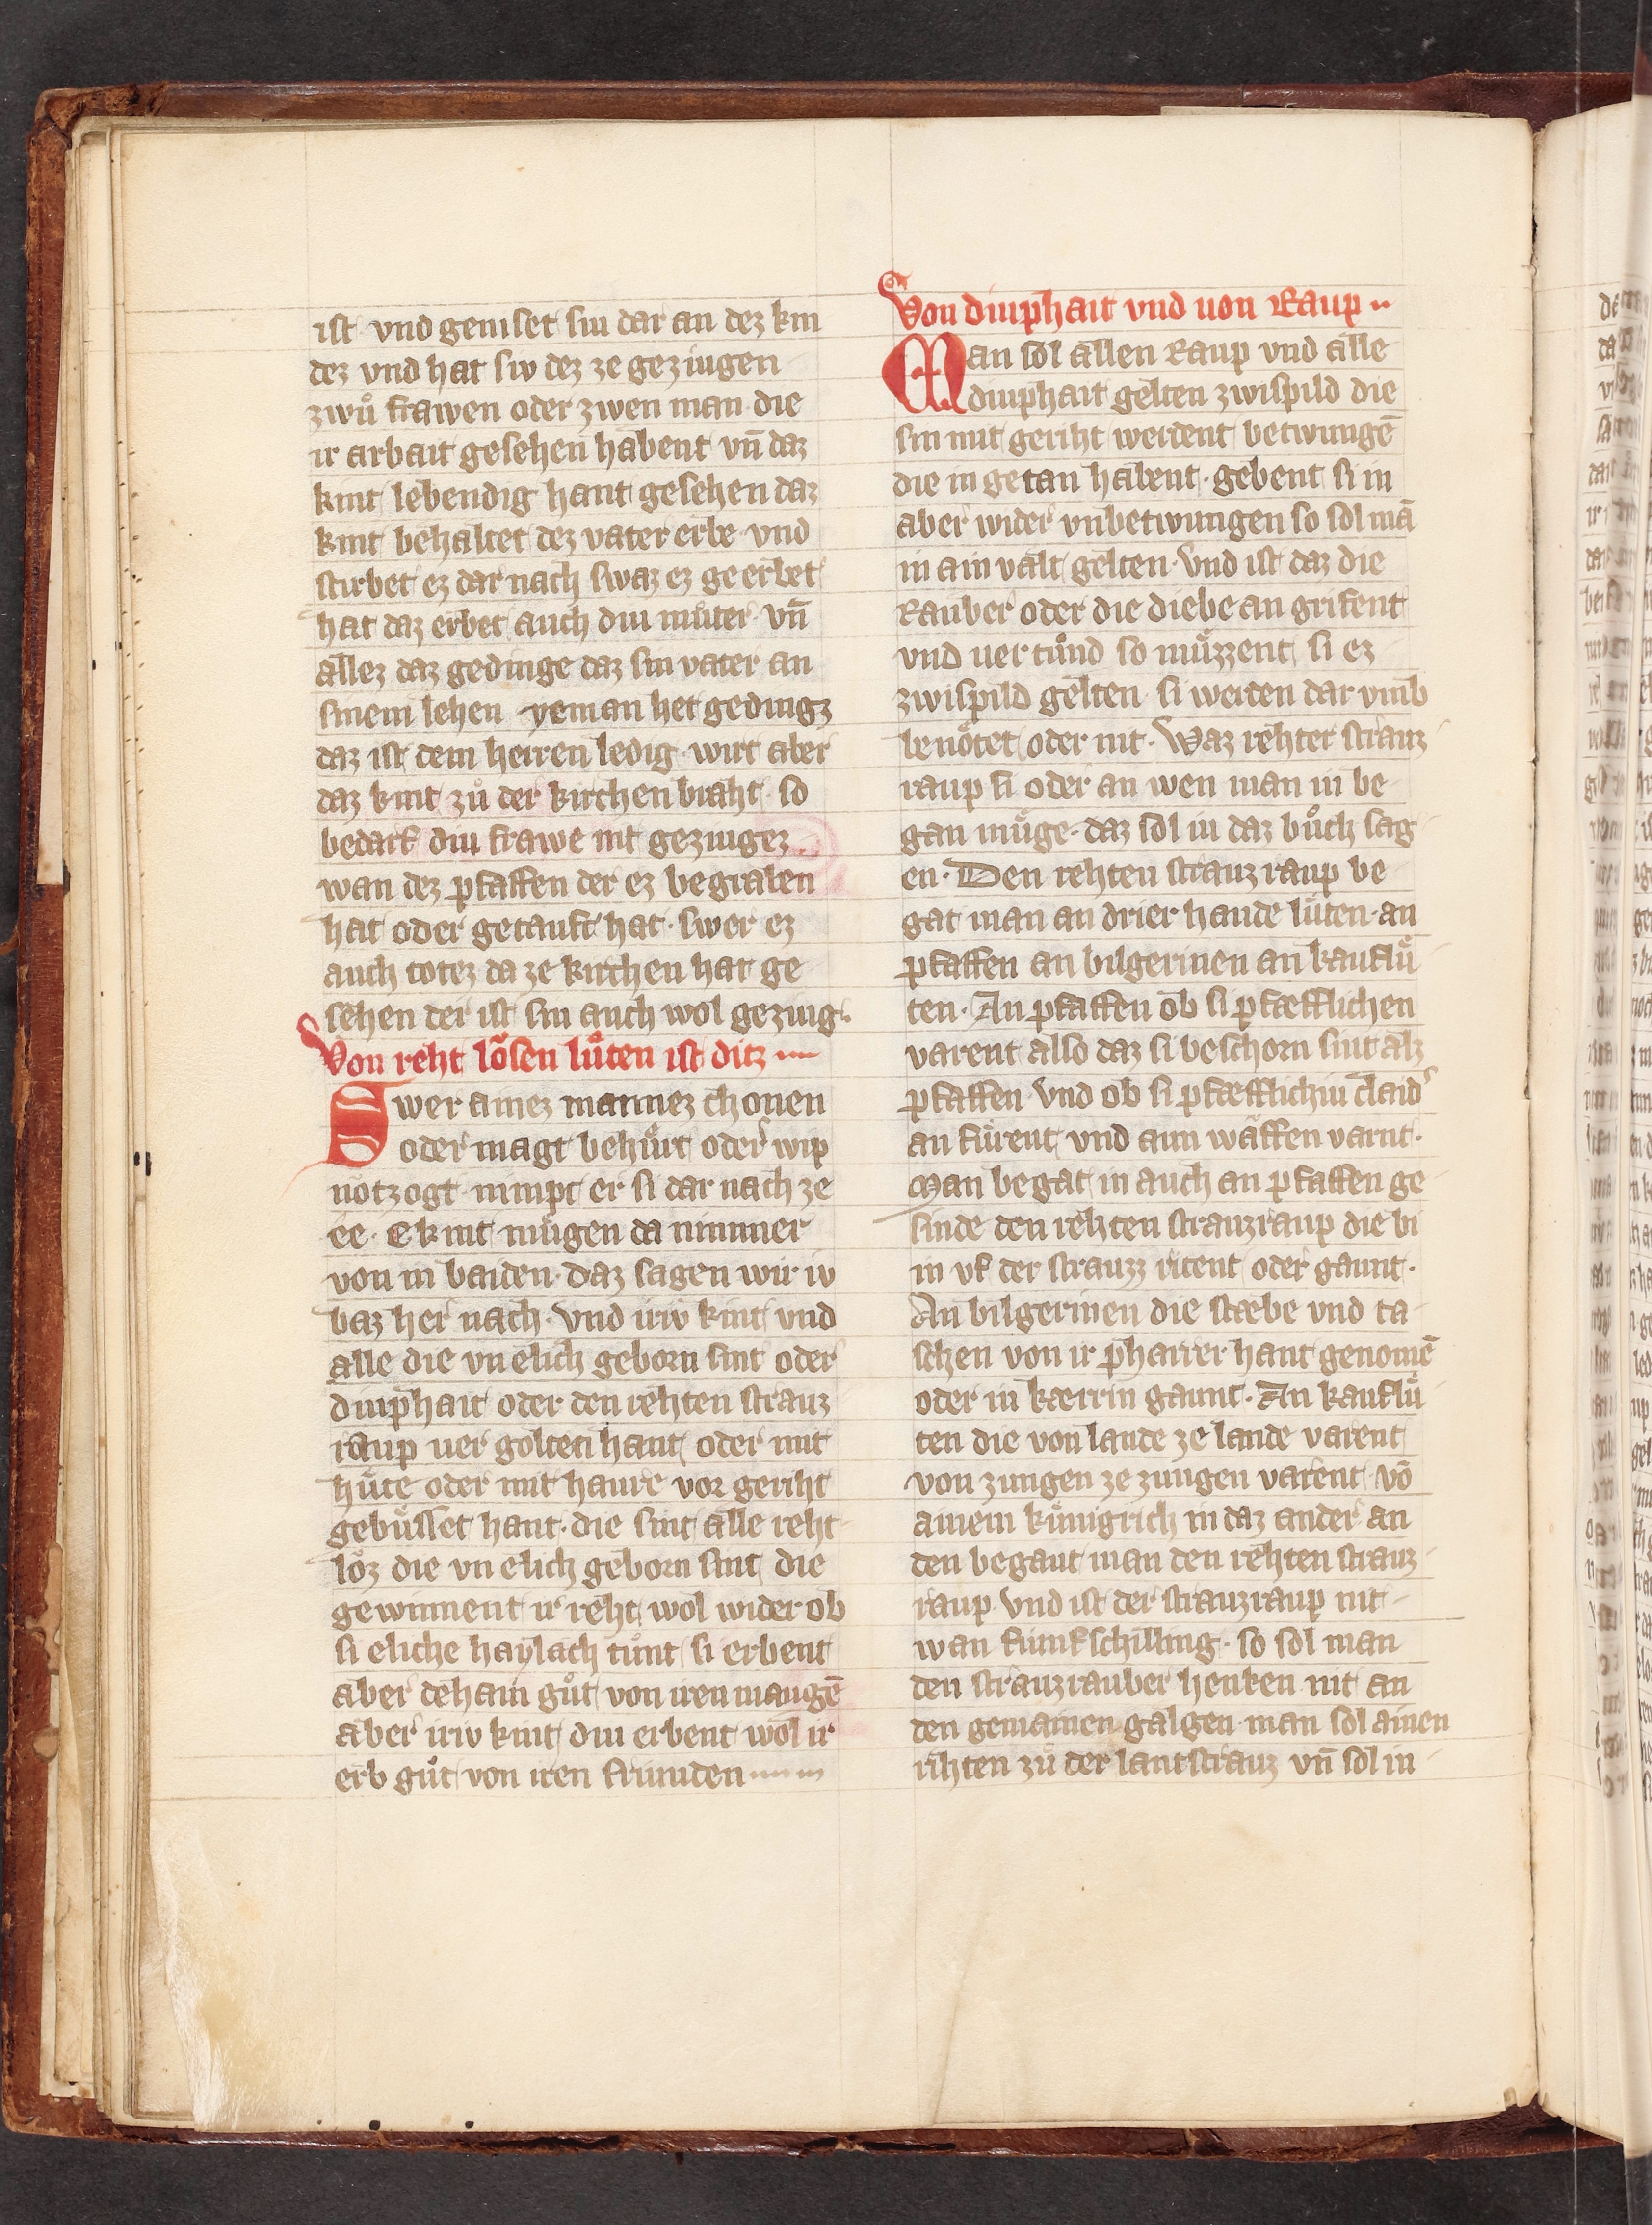 ist vnd geniset siu dar an dez kin
dez vnd hat siv dez ze geziugen
zwů frawen oder zwen man die
ir arbait gesehen habent vn̄ daz
kint lebendig hant gesehen daz
kint behaltet dez vater erbe vnd
stirbet ez dar nach swaz ez ge erbet
hat daz erbet auch diu můter vn̄
allez daz gedinge daz sin vater an
sinem lehen yeman het gedingz
daz ist dem herren ledig wirt aber
daz kint zů der kirchen braht so
bedarf diu frawe nit geziugez
wan dez pfaffen der ez begraben
hat oder getauft hat swer ez
auch totez da ze kirchen hat ge
sehen der ist sin auch wol geziug.
Von reht lösen lůten ist ditz
Swer ainez mannez chonen
oder magt behůrt oder wip
nötzogt nimpt er si dar nach ze
ee. E kint mügen da nimmer
von in baiden. daz sagen wir iv
baz her nach. vnd iriv kint vnd
alle die vn elich geborn sint oder
diuphait oder den rehten strauz
raup uer golten hant oder mit
hůte oder mit haure vor geriht
gebůsset hant. die sint alle reht
löz die vn elich geborn sint die
gewinnent ir reht wol wider ob
si eliche haylach tůnt si erbent
aber dehain gůt von iren maugē
aber iriv kint diu erbent wol ir
erb gůt von iren friunden
Von diuphait vnd uon Raup
Man sol allen Raup vnd alle
diuphait gelten zwispild die
sin mit geriht werdent betwungē
die in getan habent. gebent si in
aber wider vnbetwungen so sol mā
in ain valt gelten. vnd ist daz die
Rauber oder die diebe an grifent
vnd uer tůnd so můzzent si ez
zwispild gelten si werden dar vmb
benötet oder nit. Waz rehter strauz
raup si oder an wen man in be
gan můge. daz sol iu daz bůch sag
en. Den rehten strauz raup be
gat man an drier hande lůten. an
pfaffen an bilgerinen an kauflů
ten. An pfaffen ob si pfæfflichen
varent also daz si beschorn sint alz
pfaffen vnd ob si pfæfflichiu claid'
an fůrent vnd aun wäffen varnt.
Man begat in auch an pfaffen ge
sinde den rehten strauzraup die bi
in vf der strauzz ritent oder gaunt.
An bilgerinen die stæbe vnd ta
schen von ir pharrer hant genomē
oder in kærrin gaunt. An kauflů
ten die von lande ze lande varent
von zungen ze zungen varent vō
ainem kůnigrich in daz ander an
den begaut man den rehten strauz
raup. vnd ist der strauzraup nit
wan fünfschilling. so sol man
den strauzrauber henken nit an
den gemainen galgen man sol ainen
rihten zů der lantstrauz vn̄ sol in